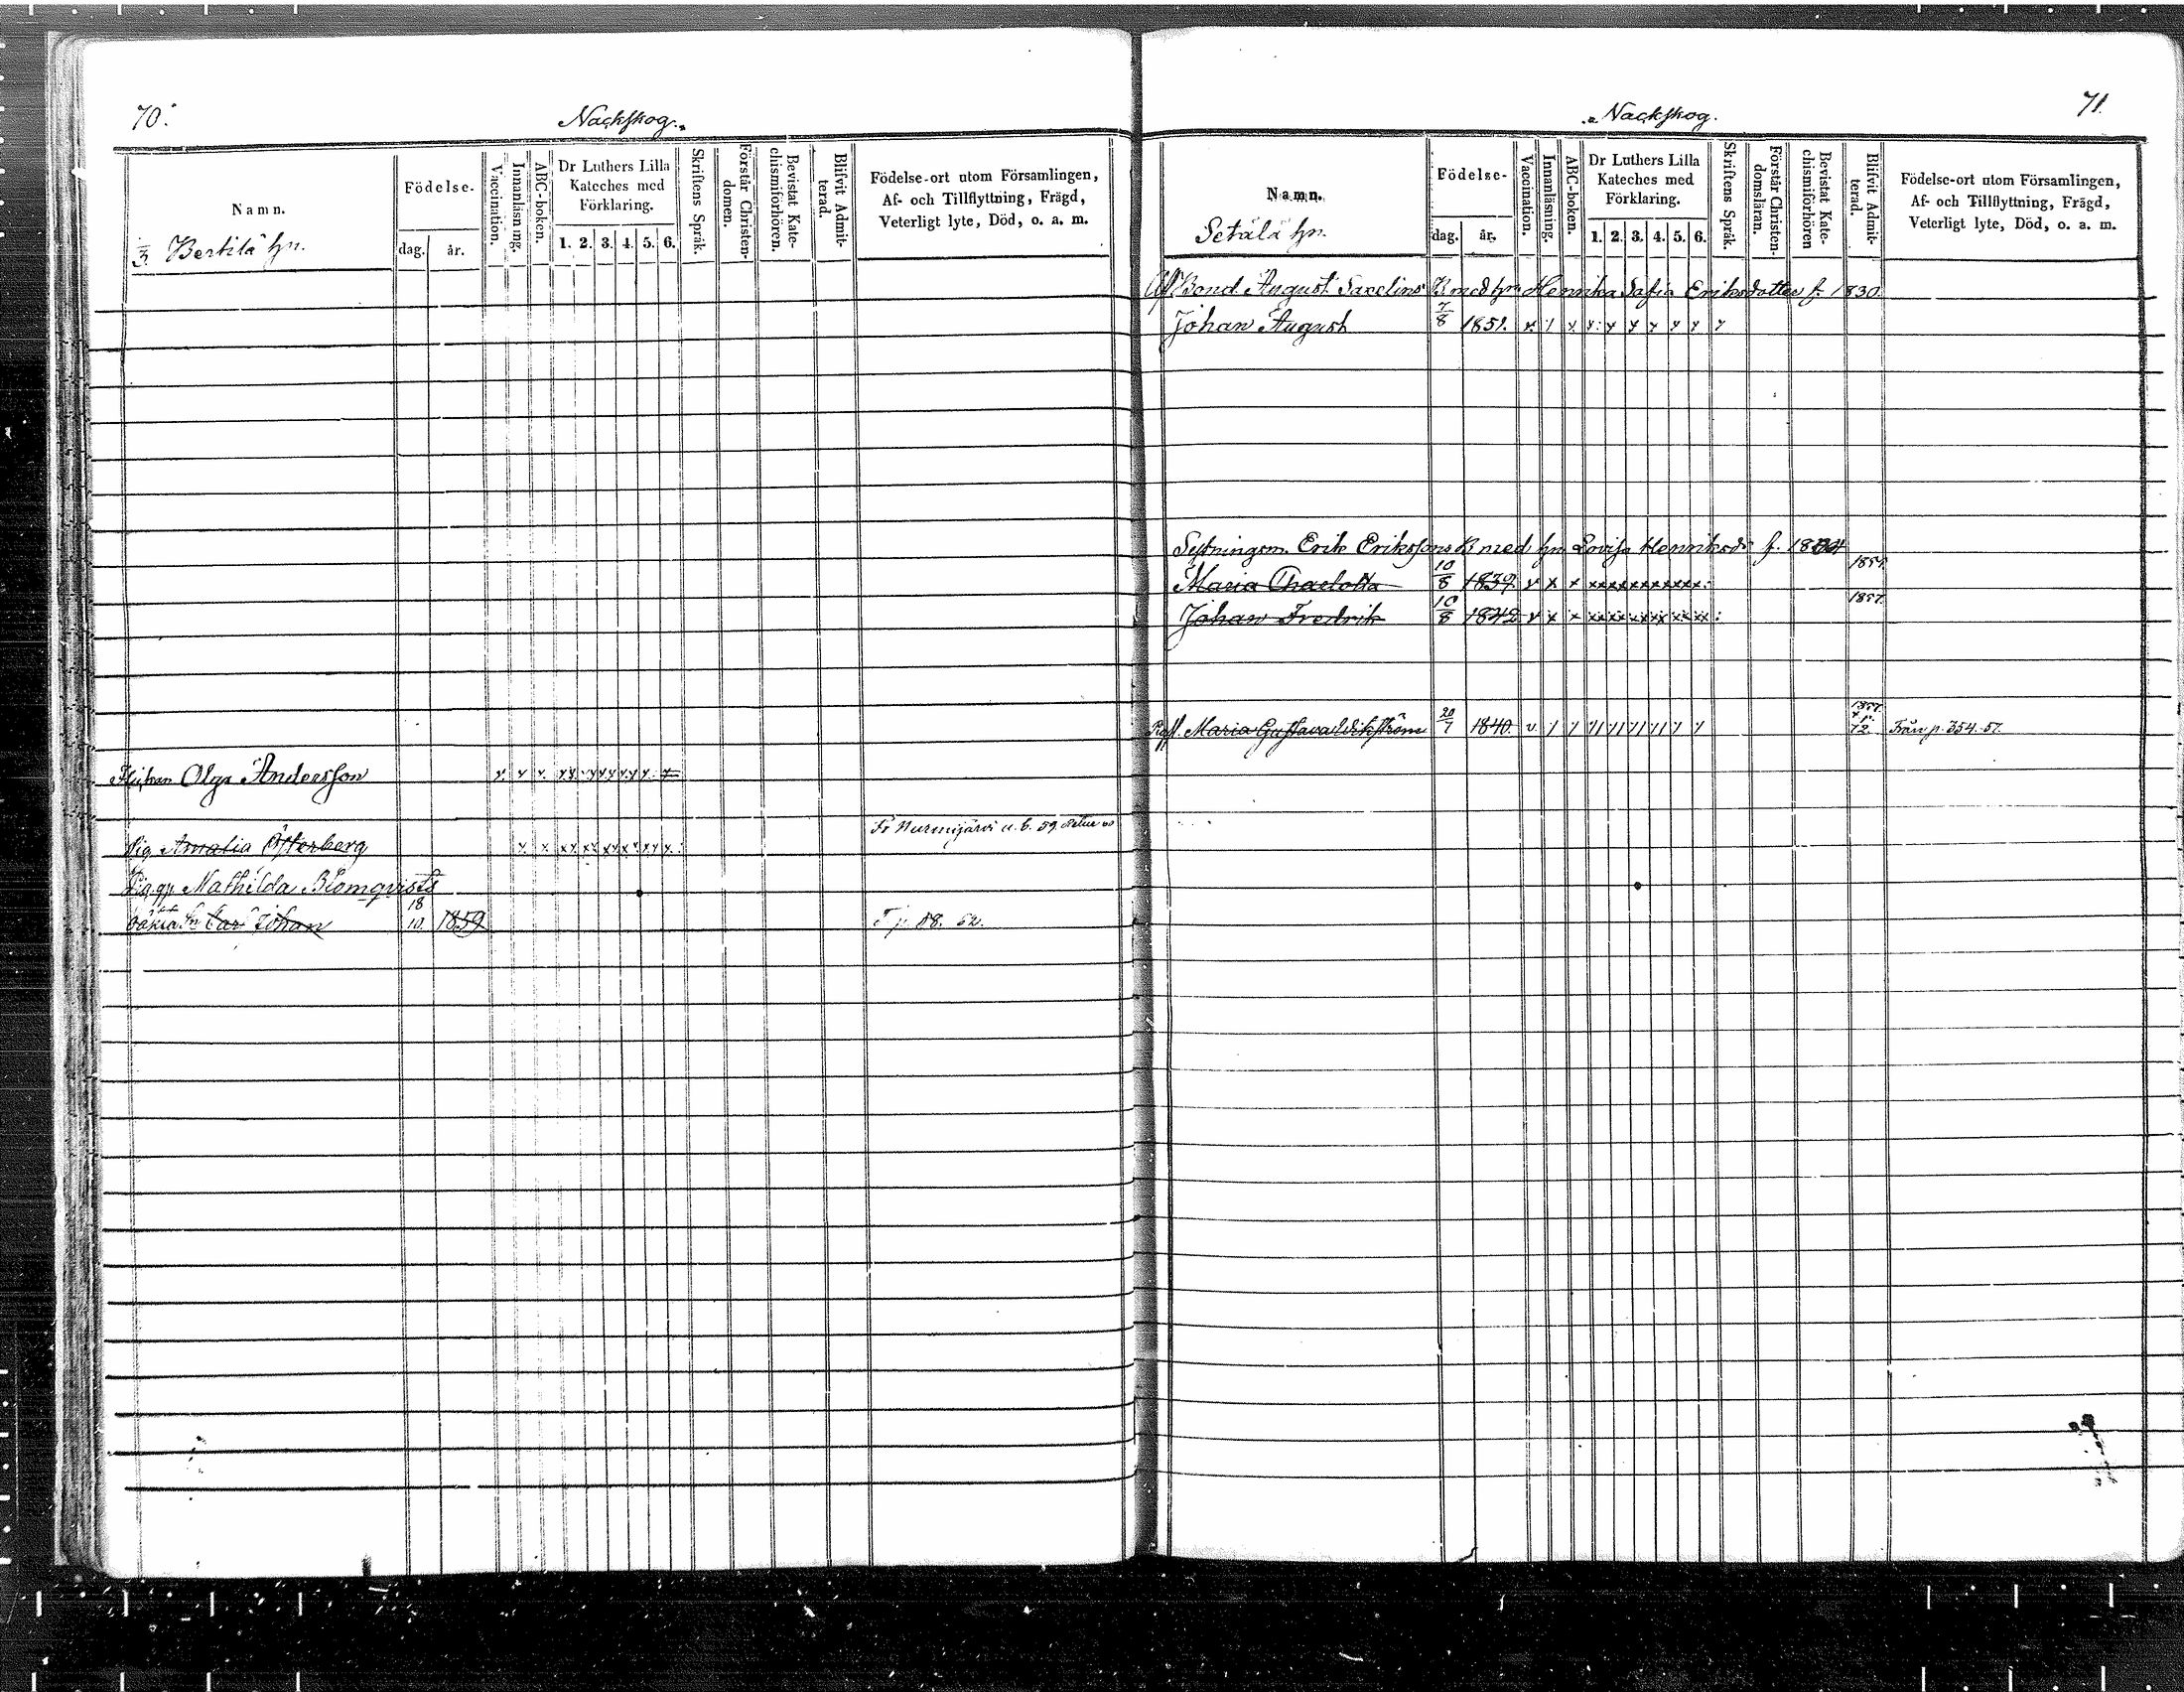 70.
Nackskog.
Namn.
Födelse-
dag. år.
Vaccination.
Innanläsning.
ABC-boken.
Dr Luthers Lilla
Kateches med
Förklaring.
1. 2. 3. 4. 5. 6.
Skriftens Språk.
Förstår Christen-
domen.
Bevistat Kate-
chismiförhören.
Blifvit Admit-
terad.
Födelse-ort utom Församlingen,
Af- och Tillflyttning, Frägd,
Veterligt lyte, Död, o. a. m.
3. Bertilä hn.
Olga Andersson x x x xx xxxxxx x x
Fr Nurmijärvi u. b. 59
Pig. Amalia Österberg x x xx xx xxxx xx x
Mathilda Blomqvists
18
10. 1859
Johan
p. 88. 62.
71.
Nackskog.
Namn.
Födelse-
dag. år.
Vaccination.
Innanläsning.
ABC-boken.
Dr Luthers Lilla
Kateches med
Förklaring.
1. 2. 3. 4. 5. 6.
Skriftens Språk.
Förstår Christen-
domsläran.
Bevistat Kate-
chismiförhören
Blifvit Admit-
terad.
Födelse-ort utom Församlingen,
Af- och Tillflyttning, Frägd,
Veterligt lyte, Död, o. a. m.
Setälä hn.
Bond. August Saxelins B med hn Henrika Sofia Eriksdotter f. 1830.
Johan August 7/8 1851. x / x x x x x x x x
Sytningsm. Erik Erikssons B med hn Lovisa Henriksdr f.
Maria Charlotta 10/8 1839 v x x xxxxxxxxxxx
Johan Fredrik 10/8 1842 v x x xx xx xx xx xx xx 1857.
Maria Gustava Wikström 20/7 1840. v / Från p. 354. 57.